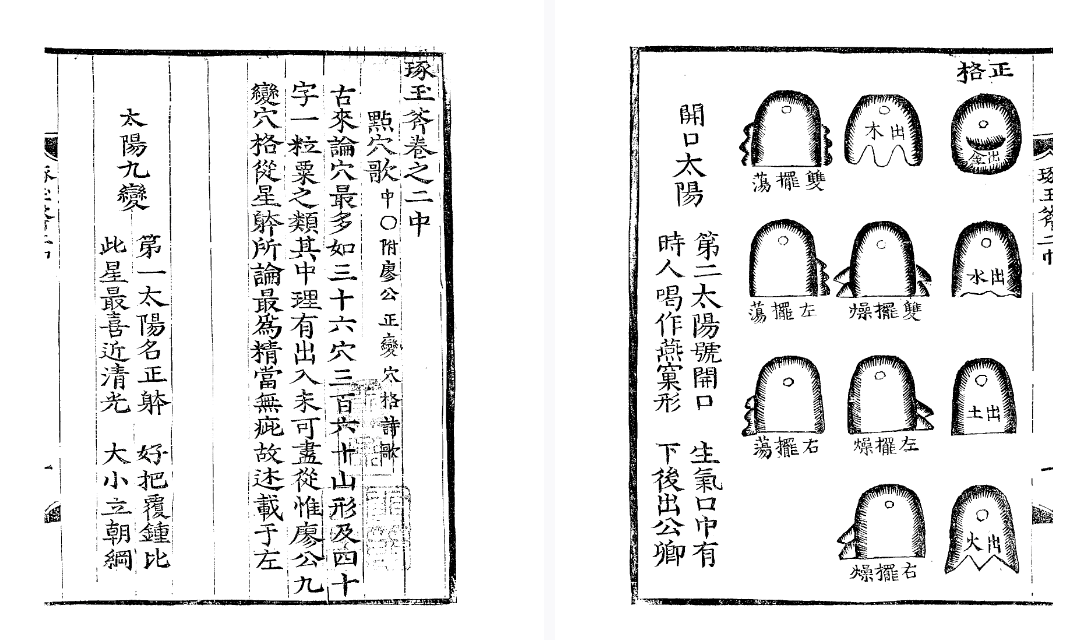 琢玉斧卷之二中
點穴歌 中〇附廖公正變穴格詩歌
古來論穴最多如三十六穴三百六十山形及四十
字一粒粟之類其中理有出入未可盡從惟廖公九
變穴格從星躰所論最爲精當無疵故述載于左
太陽九變
第一太陽名正躰 好把覆鐘比
此星最喜近清光 大小立朝綱
琢玉斧二中
正格
出金
出水
出土
出火
出木
雙擺燥
左擺燥
右擺燥
雙擺蕩
左擺蕩
右擺蕩
開口太陽
第二太陽號開口 生氣口中有
時人喝作燕窠形 下後出公卿